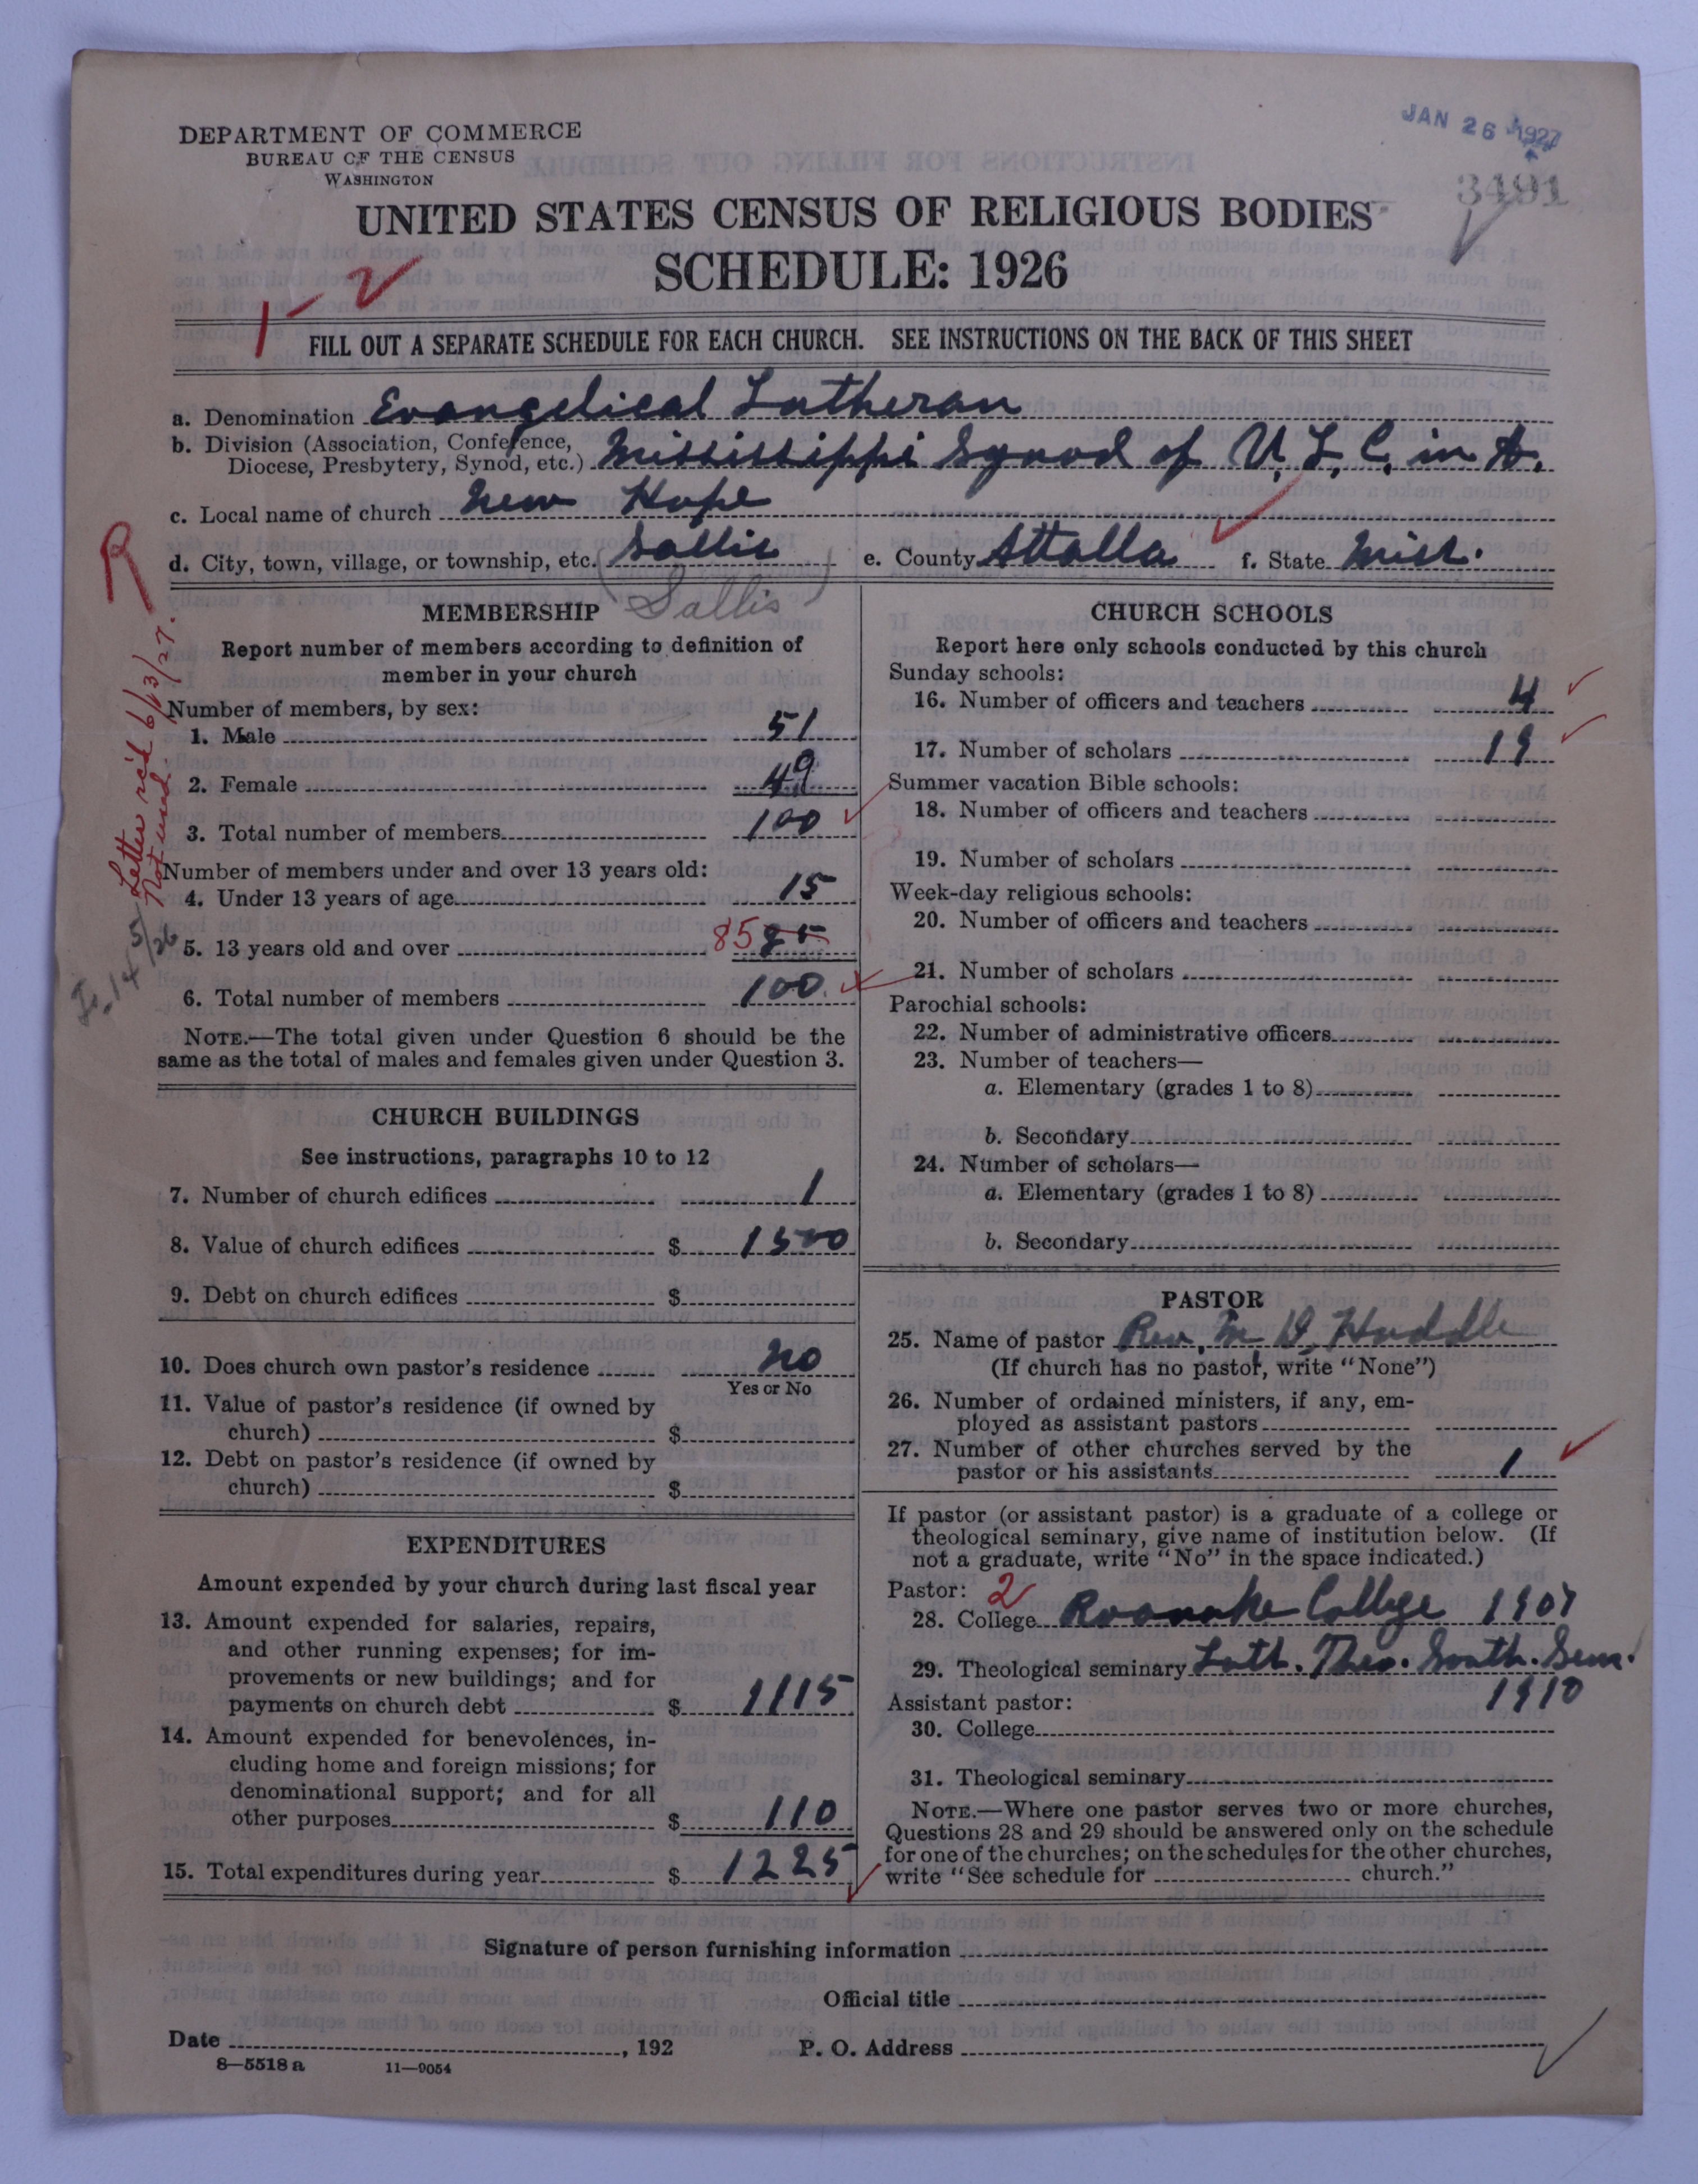 DEPARTMENT OF COMMERCE
BUREAU OF THE CENSUS
WASHINGTON
JAN 26 1927
3491
UNITED STATES CENSUS OF RELIGIOUS BODIES
SCHEDULE: 1926
1 - 2
FILL OUT A SEPARATE SCHEDULE FOR EACH CHURCH. SEE INSTRUCTIONS ON THE BACK OF THIS SHEET
a. Denomination Evangelical Lutheran
b. Division (Association, Conference,
Diocese, Presbytery, Synod, etc.) Mississippi Synod of U. L. C. in A.
c. Local name of church New Hope
d. City, town, village, or township, etc. (Sallis) e. County Attalla f. State Miss.
Sallis
R
Letter rec'd 6/13/27.
Not used.
MEMBERSHIP
Report number of members according to definition of
member in your church
Number of members, by sex:
1. Male 51
2. Female 49
3. Total number of members 100
Number of members under and over 13 years old:
4. Under 13 years of age 15
5. 13 years old and over 85 85
6. Total number of members 100
NOTE.—The total given under Question 6 should be the
same as the total of males and females given under Question 3.
CHURCH BUILDINGS
See instructions, paragraphs 10 to 12
7. Number of church edifices 1
8. Value of church edifices $ 1500
9. Debt on church edifices $
10. Does church own pastor's residence No
Yes or No
11. Value of pastor's residence (if owned by
church) $
12. Debt on pastor's residence (if owned by
church) $
EXPENDITURES
Amount expended by your church during last fiscal year
13. Amount expended for salaries, repairs,
and other running expenses; for im-
provements or new buildings; and for
payments on church debt $ 1115
14. Amount expended for benevolences, in-
cluding home and foreign missions; for
denominational support; and for all
other purposes $ 110
15. Total expenditures during year $ 1225
CHURCH SCHOOLS
Report here only schools conducted by this church
Sunday schools:
16. Number of officers and teachers 4
17. Number of scholars 19
Summer vacation Bible schools:
18. Number of officers and teachers
19. Number of scholars
Week-day religious schools:
20. Number of officers and teachers
21. Number of scholars
Parochial schools:
22. Number of administrative officers
23. Number of teachers—
a. Elementary (grades 1 to 8)
b. Secondary
24. Number of scholars—
a. Elementary (grades 1 to 8)
b. Secondary
PASTOR
25. Name of pastor Rev. M. D. Huddle
(If church has no pastor, write "None")
26. Number of ordained ministers, if any, em-
ployed as assistant pastors
27. Number of other churches served by the
pastor or his assistants 1
If pastor (or assistant pastor) is a graduate of a college or
theological seminary, give name of institution below. (If
not a graduate, write "No" in the space indicated.)
Pastor: 2
28. College Roanoke College 1907
29. Theological seminary Luth. Theo. South. Sem.
1910
Assistant pastor:
30. College
31. Theological seminary
NOTE.—Where one pastor serves two or more churches,
Questions 28 and 29 should be answered only on the schedule
for one of the churches; on the schedules for the other churches,
write "See schedule for church."
Signature of person furnishing information
Official title
Date , 192 P. O. Address
8—5518 a 11—9054